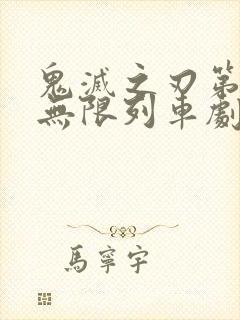 鬼滅之刃第
無限列車劇
馬寧宇